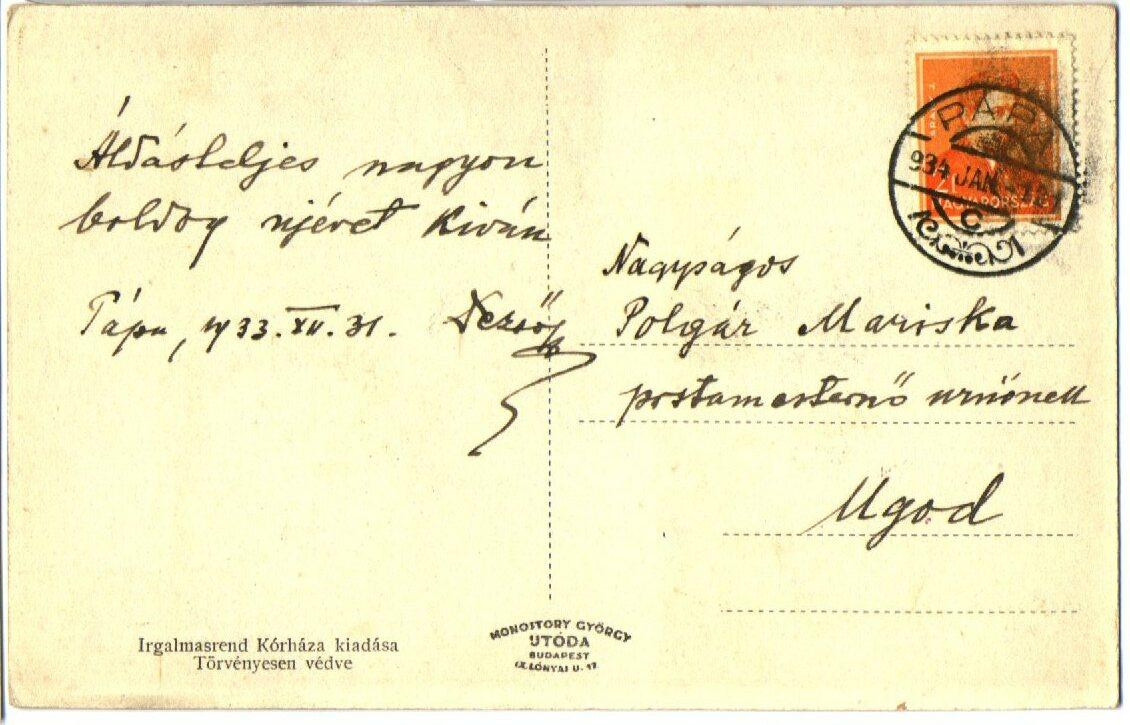 Áldásteljes nagyon
boldog újévet kíván
Pápa, 1933. XII. 31. Dezső
Nagyságos
Polgár Mariska
postamesternő urnőnek
Ugod
PÁPA
934 JAN
C
MAGYARORSZÁG
Irgalmasrend Kórháza kiadása
Törvényesen védve
MONOSTORY GYÖRGY
UTÓDA
BUDAPEST
IX. LÓNYAI U. 17